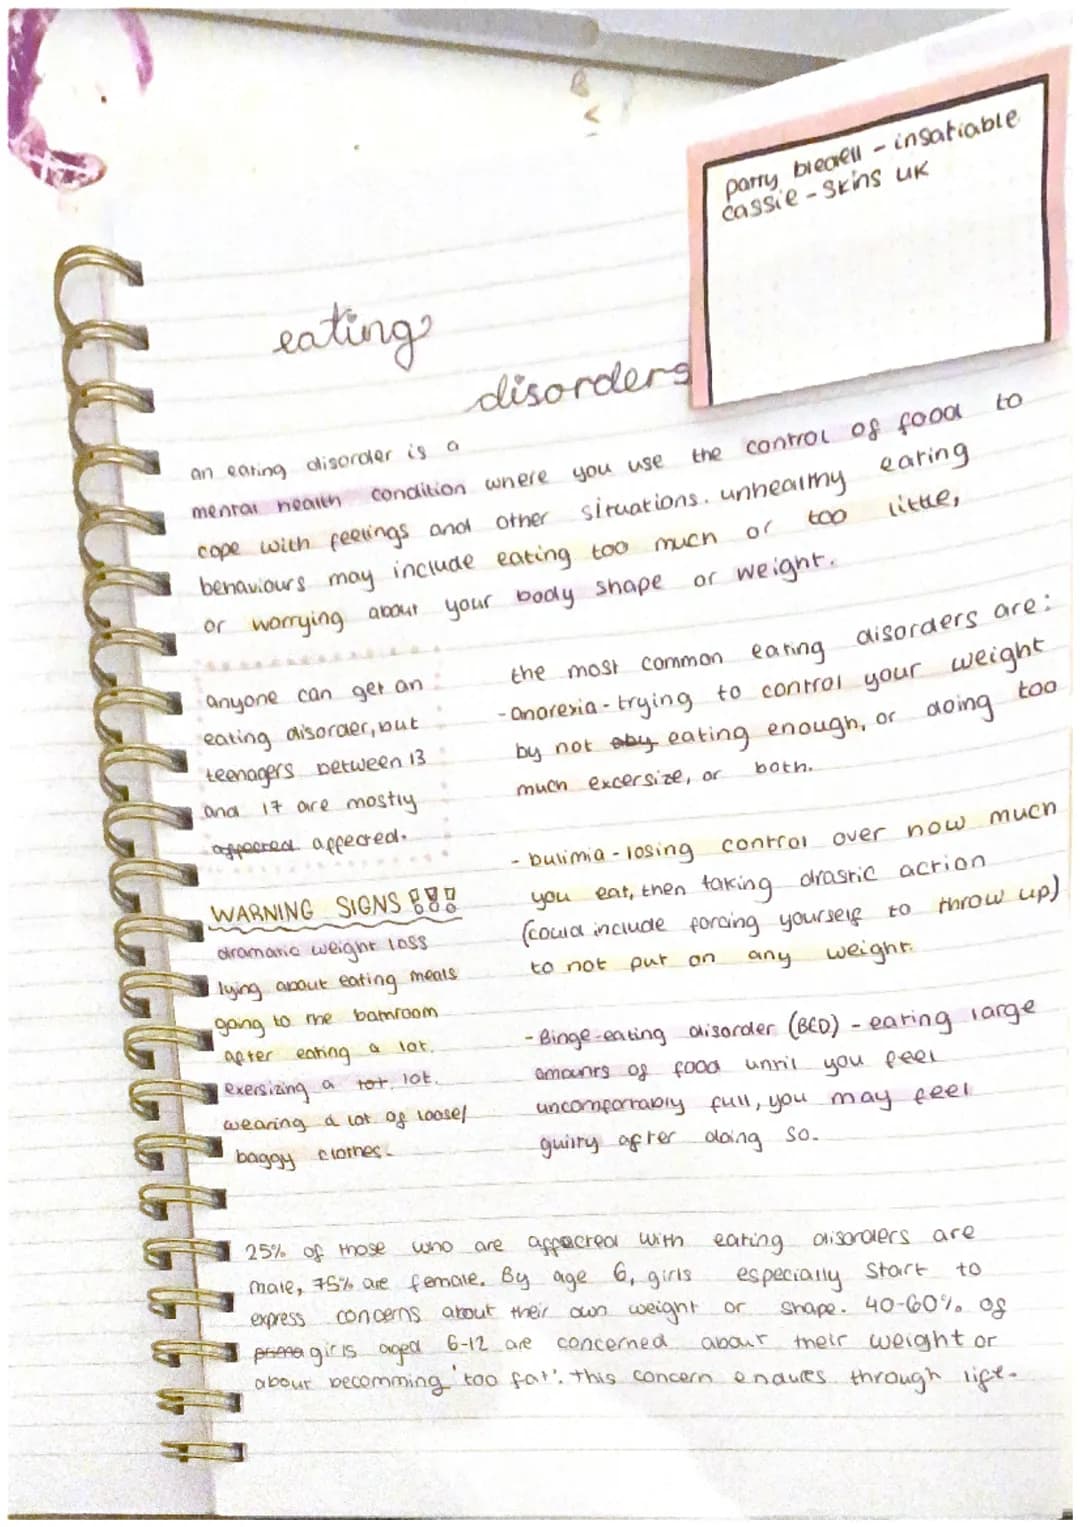 patty bladell - insatiable
cassie - skins uk
eating
disorders
an eating disorder is a
mental health condition where you use the control of food to
cope with feelings and other situations. unhealthy eating
behaviours may include eating too much or too little,
or worrying about your body shape or weight.
anyone can get an
eating disorder, but
teenagers between 13
and 17 are mostly
affected.
WARNING SIGNS !!!
dramatic weight loss
lying about eating meals
going to the bathroom
after eating a lot.
exersizing a lot.
wearing a lot of loose/
baggy clothes.
the most common eating disorders are:
- anorexia - trying to control your weight
by not eating enough, or doing too
much excersize, or both.
- bulimia - losing control over how much
you eat, then taking drastic action
(could include forcing yourself to throw up)
to not put on any weight.
- Binge-eating disorder (BED) - eating large
amounts of food until you feel
uncomfortably full, you may feel
guilty after doing so.
25% of those who are affected with eating disorders are
male, 75% are female. By age 6, girls especially start to
express concerns about their own weight or shape. 40-60% of
girls aged 6-12 are concerned about their weight or
about becomming 'too fat'. this concern endures through life.